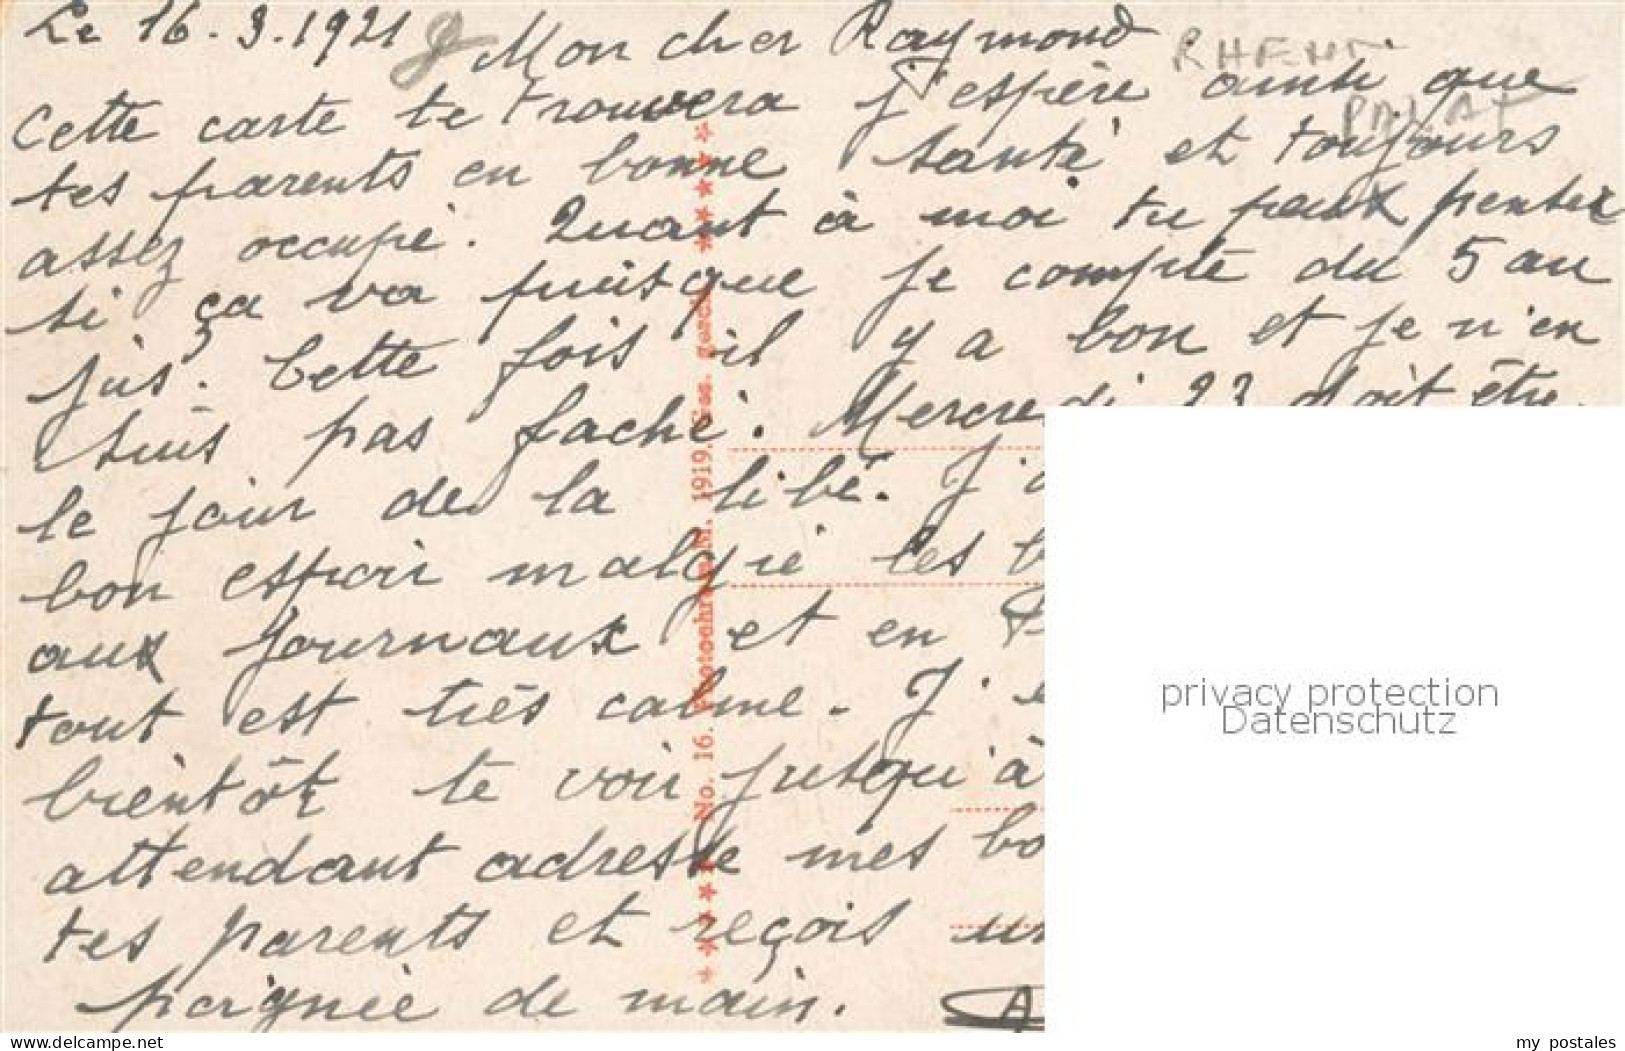 Le 16.3.1921 Mon cher Raymond
RHEIN.
PALAT
Cette carte te trouvera j'espère ainsi que
tes parents en bonne santé et toujours
assez occupé. Quant à moi tu peux penser
si ça va puisque je compte du 5 au
jus. Cette fois il y a bon et je n'en
suis pas faché. Mercredi 23 doit être
le jour de la libé. J'
bon espoir malgré les
aux journaux et en
tout est très calme. J'e
bientôt te voir jusqu'à
attendant adresse mes bo
tes parents et reçois un
poignée de main. A
No. 16. Photochromie. 1919. Ges. gesch.
privacy protection
Datenschutz
www.delcampe.net
my_postales